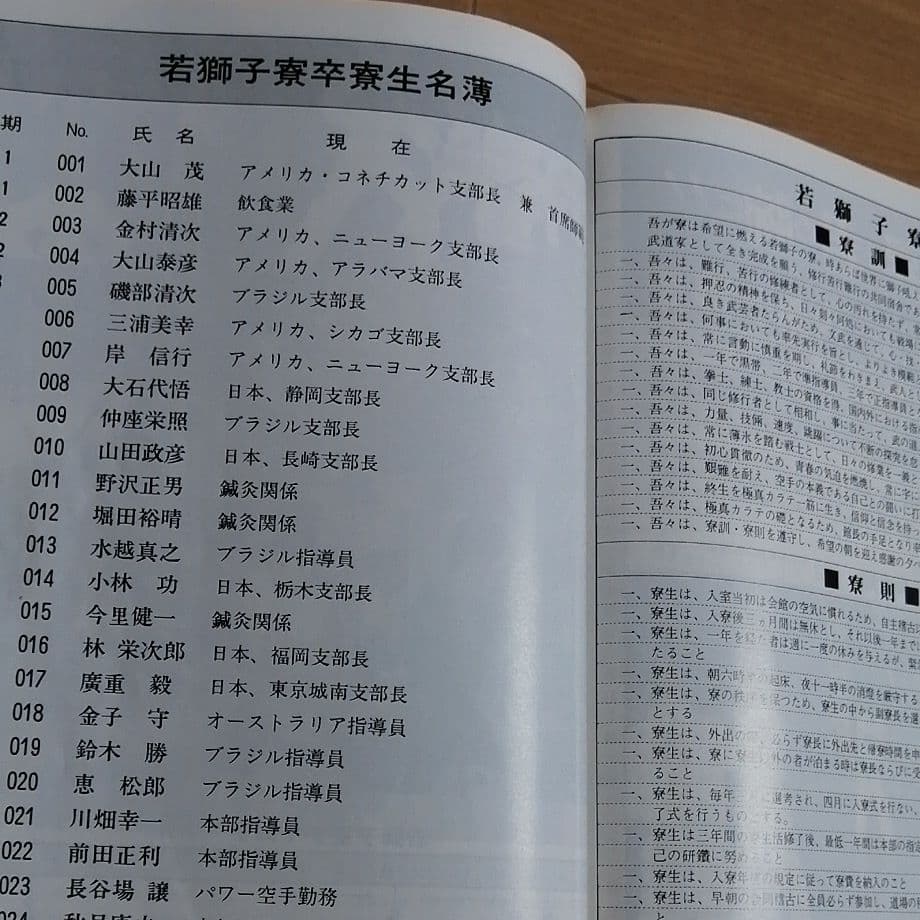 若獅子寮卒寮生名薄
期 No. 氏名 現在
1 001 大山 茂 アメリカ・コネチカット支部長 兼 首席師範
1 002 藤平昭雄 飲食業
2 003 金村清次 アメリカ、ニューヨーク支部長
2 004 大山泰彦 アメリカ、アラバマ支部長
005 磯部清次 ブラジル支部長
006 三浦美幸 アメリカ、シカゴ支部長
007 岸 信行 アメリカ、ニューヨーク支部長
008 大石代悟 日本、静岡支部長
009 仲座栄照 ブラジル支部長
010 山田政彦 日本、長崎支部長
011 野沢正男 鍼灸関係
012 堀田裕晴 鍼灸関係
013 水越真之 ブラジル指導員
014 小林 功 日本、栃木支部長
015 今里健一 鍼灸関係
016 林 栄次郎 日本、福岡支部長
017 廣重 毅 日本、東京城南支部長
018 金子 守 オーストラリア指導員
019 鈴木 勝 ブラジル指導員
020 恵 松郎 ブラジル指導員
021 川畑幸一 本部指導員
022 前田正利 本部指導員
023 長谷場 譲 パワー空手勤務
024
若獅子寮
■寮訓■
吾が寮は希望に燃える若獅子の寮、時あらば世界に獅子吼
武道家として全き完成を願う、修行苦行難行の共同宿舎であ
一、吾々は、難行、苦行の修練者として、心の汚れを持たず、
一、吾々は、押忍の精神を保ち、日々刻々何処においても戦場に
一、吾々は、良き武芸者たらんがため、文武を通じて、心・技
一、吾々は、何事においても率先実行を旨とし、よりよき模範
一、吾々は、常に言動に慎重を期し、礼節をわきまえ、武人と
一、吾々は、一年で黒帯、二年で準指導員、三年で正指導員
一、吾々は、拳士、練士、教士の資格を得、国内外における指
一、吾々は、同じ修行者として相和し、事に当たって、武の道
一、吾々は、力量、技倆、速度、跳躍について不断の探究を
一、吾々は、常に薄氷を踏む戦士として、日々の修業を一義と
一、吾々は、初心貫徹のため、青春の気迫を燃焼し、常に字
一、吾々は、艱難を耐え、空手の本義である自己との闘いに
一、吾々は、終生を極真カラテ一筋に生き、信仰と信念を持
一、吾々は、極真カラテの礎となるため、館長の手足となり
一、吾々は、寮訓・寮則を遵守し、希望の朝を迎え感謝の夕べ
■寮則■
一、寮生は、入室当初は会館の空気に慣れるため、自主稽古
一、寮生は、入寮後三ヵ月間は無休とし、それ以後一年まで
一、寮生は、一年を経た者は週に一度の休みを与えるが、緊
たること
一、寮生は、朝六時半の起床、夜十一時半の消燈を厳守する
一、寮生は、寮の秩序を保つため、寮生の中から副寮長を選
とする
一、寮生は、外出の 必ず寮長に外出先と帰寮時間を申
一、寮生は、寮に寮生以外の者が泊まる時は寮長ならびに
ること
一、寮生は、毎年 に選考され、四月に入寮式を行ない、
了式を行うものとする。
一、寮生は三年間の寮生活修了後、最低一年間は本部の指
己の研鑽に努めること
一、寮生は、入寮年度の規定に従って寮費を納入のこと
一、寮生は、早朝の合同稽古に全員必ず参加し、道場の
と